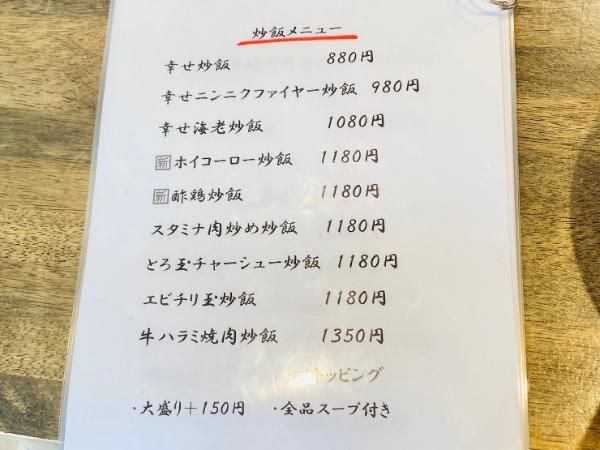 炒飯メニュー
幸せ炒飯 880円
幸せニンニクファイヤー炒飯 980円
幸せ海老炒飯 1080円
新 ホイコーロー炒飯 1180円
新 酢鶏炒飯 1180円
スタミナ肉炒め炒飯 1180円
とろ玉チャーシュー炒飯 1180円
エビチリ玉炒飯 1180円
牛ハラミ焼肉炒飯 1350円
トッピング
・大盛り+150円 ・全品スープ付き